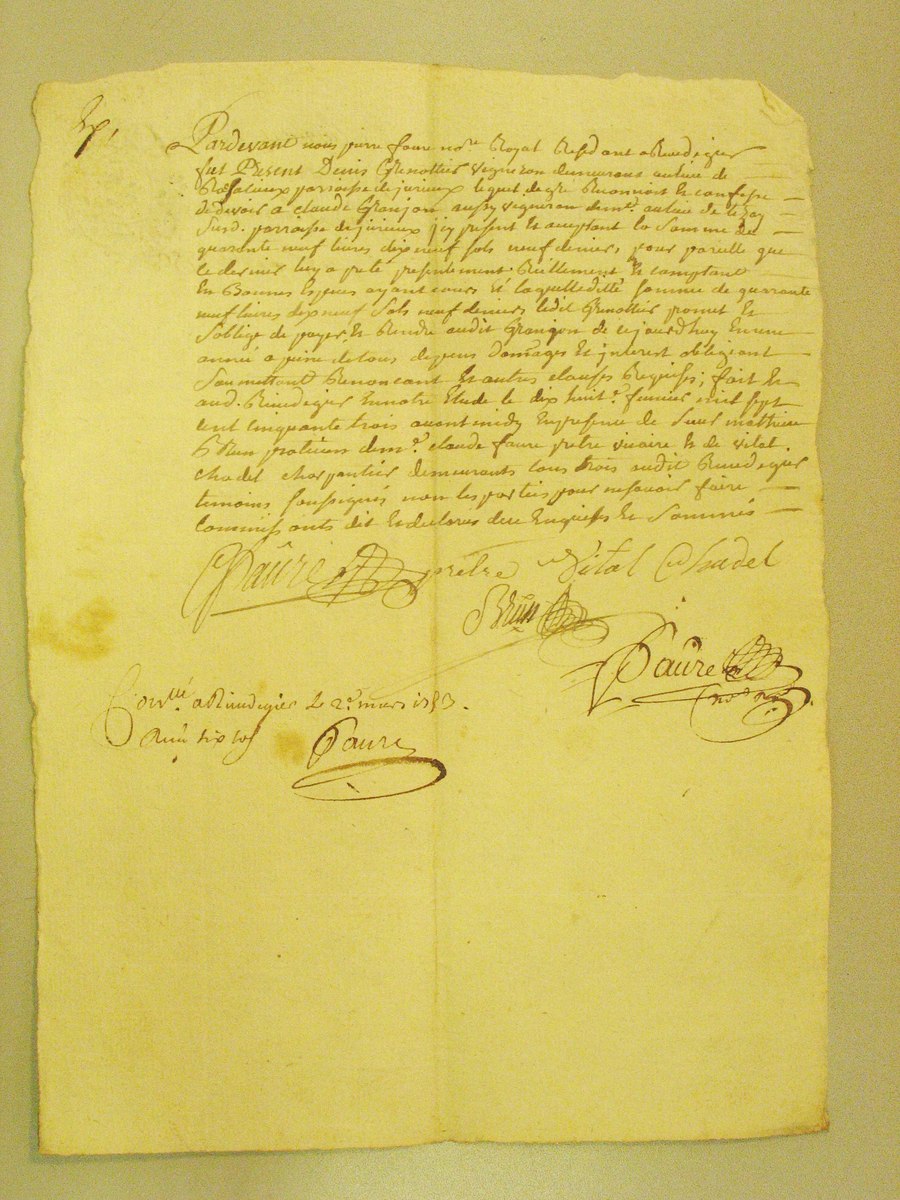 Pardevant nous pierre faure no.re Royal Residant a Rivedegier
fut Present Denis Grenottier vigneron demeurant au lieu de
parroisse de jurieux lequel de gre Reconnoit et confesse
de devoir a claude Granjon aussy vigneron dem.t au lieu de
Susd. parroisse de jurieux jcy present et acceptant la Somme de
quarante neuf livres dix neuf sols neuf deniers, pour pareille que
ce dernier luy a preté presentement Reellement et comptant
En Bonnes Especes ayant cours laquelle ditte somme de quarante
neuf livres dix neuf Sols neuf deniers ledit Grenottier promet et
S'oblige de payer et Rendre audit Granjon de cejourdhuy en une
année a peine de tous depens dommages et jnterest obligeant
Soumettant Renoncant et autres clauses Requises; fait et
aud. Rivedegier En notre Etude le dix huit.e feuvrier mil sept
cent cinquante trois avant midy En presence de Sieur mathieu
Brun praticien dem.t claude faure pretre vicaire et de vital
chadel charpentier demeurants tous trois audit Rivedegier
temoins soussignés non les parties pour ne scavoir faire
dit et declaré de ce Enquises et Sommés
Faure pretre Vital Chadel
Brun
Faure
no.re R.
Con.llé a Rivedegier le 2.e mars 1753.
Reçu six sols
Faure